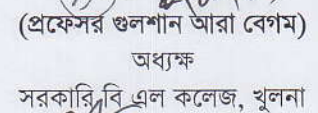 (প্রফেসর গুলশান আরা বেগম)
অধ্যক্ষ
সরকারি বি এল কলেজ, খুলনা